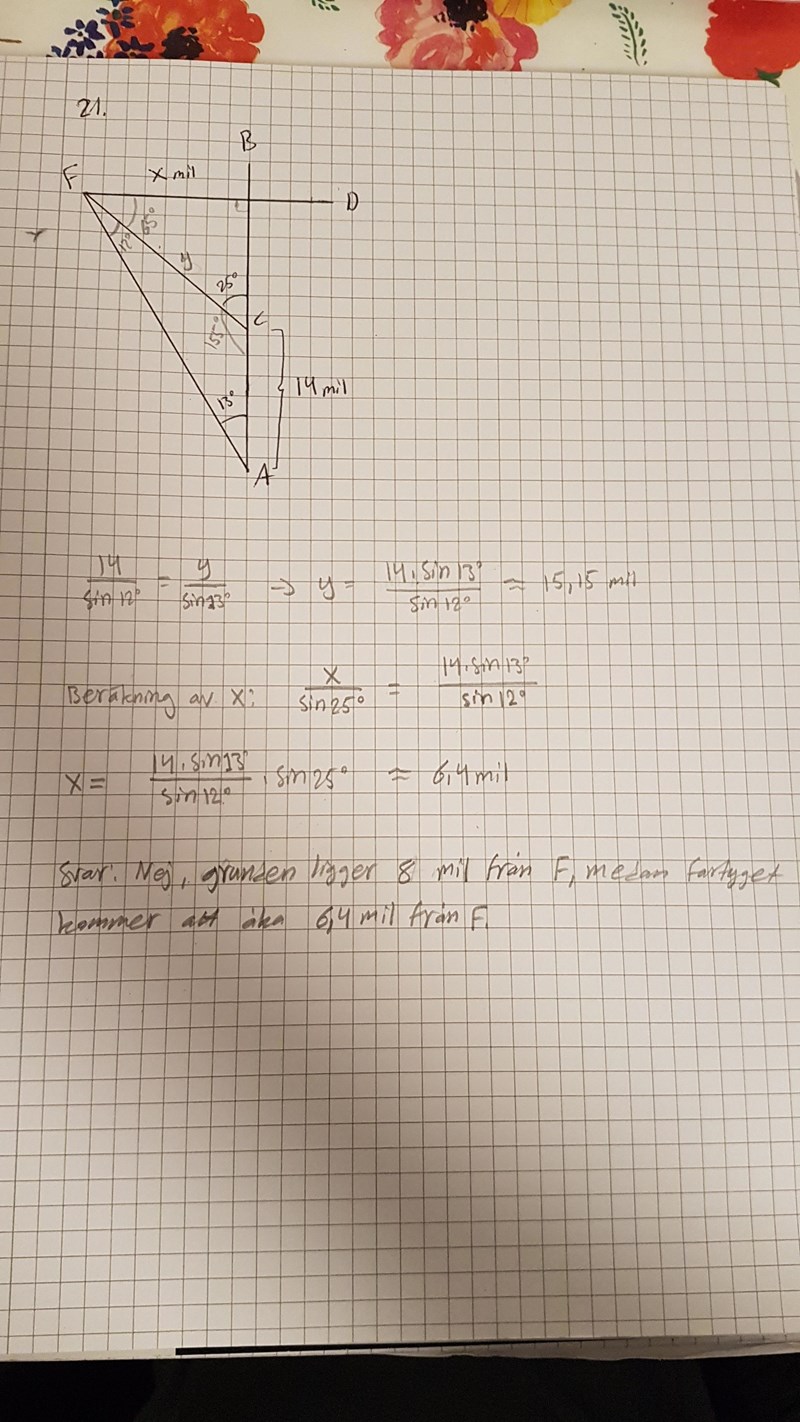 21.
B
F x mil D
65°
12° y
25°
C
155°
14 mil
13°
A
14/sin 12° = y/sin 13° → y = 14·sin 13°/sin 12° ≈ 15,15 mil
Beräkning av x: x/sin 25° = 14·sin 13°/sin 12°
x = 14·sin 13°/sin 12° · sin 25° ≈ 6,4 mil
Svar: Nej, grunden ligger 8 mil från F, medan fartyget
kommer att åka 6,4 mil från F.